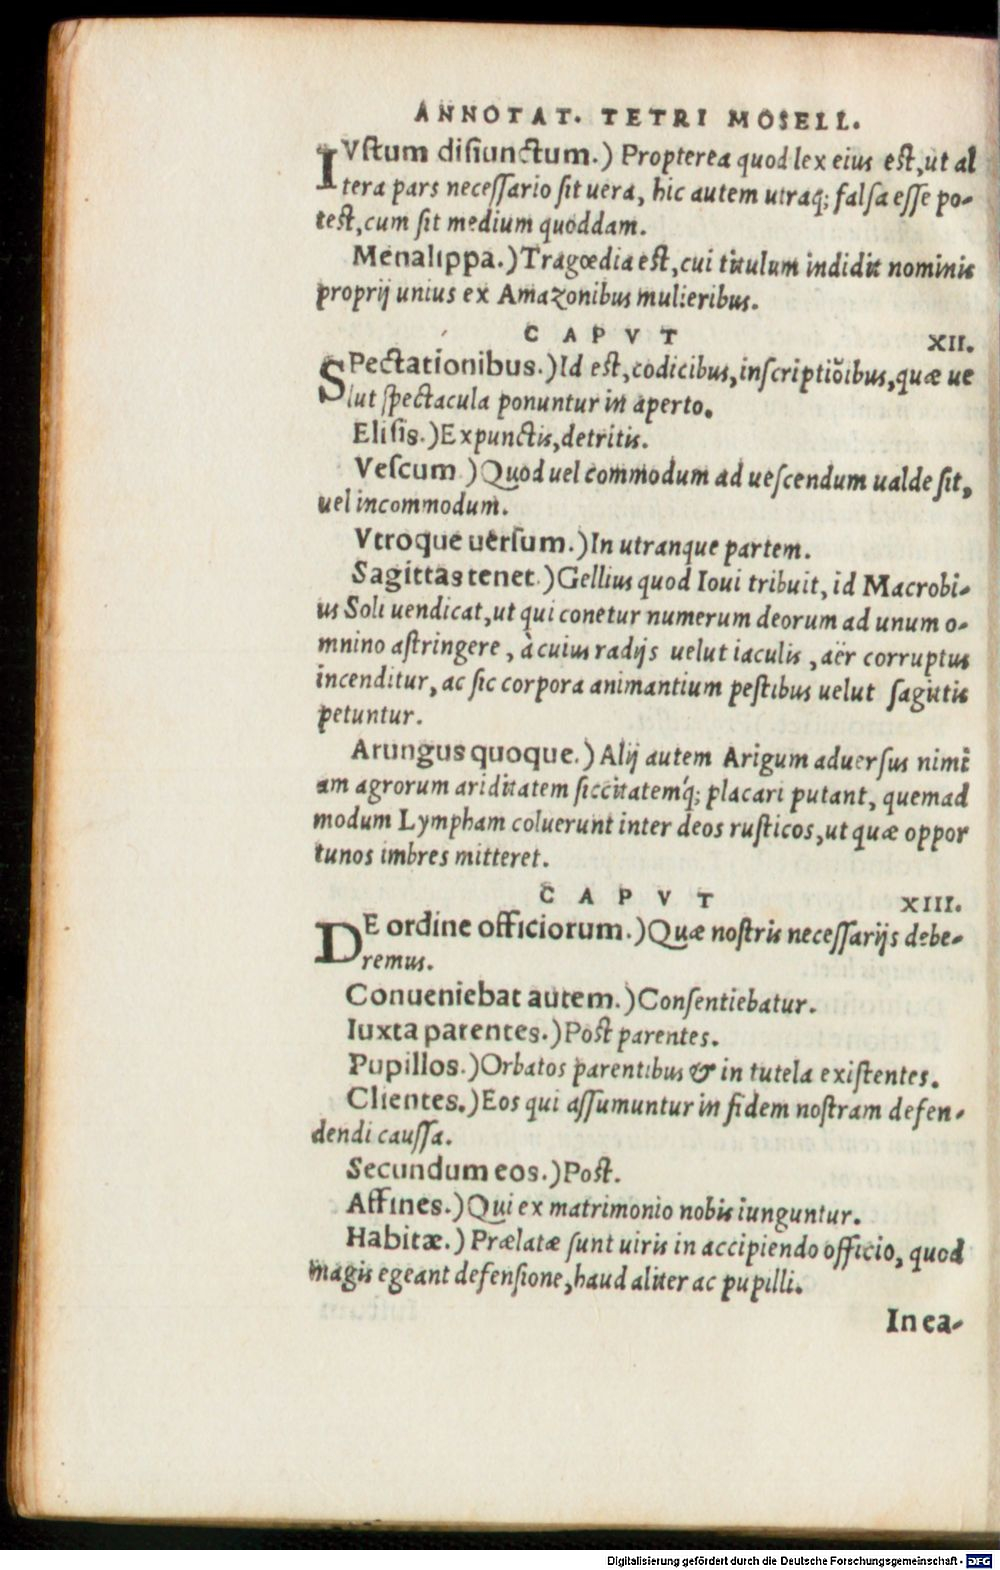 ANNOTAT. TETRI MOSELL.
IVstum disiunctum.) Propterea quod lex eius est,ut al
tera pars necessario sit uera, hic autem utraq; falsa esse po-
test,cum sit medium quoddam.
Menalippa.)Tragœdia est,cui titulum indidit nominis
proprij unius ex Amazonibus mulieribus.
CAPVT XII.
SPectationibus.)Id est,codicibus,inscriptiōibus,quæ ue
lut spectacula ponuntur in aperto.
Elisis.)Expunctis,detritis.
Vescum.)Quod uel commodum ad uescendum ualde sit,
uel incommodum.
Vtroque uersum.)In utranque partem.
Sagittas tenet.)Gellius quod Ioui tribuit, id Macrobi-
us Soli uendicat,ut qui conetur numerum deorum ad unum o-
mnino astringere, à cuius radijs uelut iaculis, aër corruptus
incenditur, ac sic corpora animantium pestibus uelut sagittis
petuntur.
Arungus quoque.) Alij autem Arigum aduersus nimi
am agrorum ariditatem siccitatemq́; placari putant, quemad
modum Lympham coluerunt inter deos rusticos,ut quæ oppor
tunos imbres mitteret.
CAPVT XIII.
DE ordine officiorum.)Quæ nostris necessarijs debe-
remus.
Conueniebat autem.)Consentiebatur.
Iuxta parentes.)Post parentes.
Pupillos.)Orbatos parentibus & in tutela existentes.
Clientes.)Eos qui assumuntur in fidem nostram defen-
dendi caussa.
Secundum eos.)Post.
Affines.)Qui ex matrimonio nobis iunguntur.
Habitæ.) Prælatæ sunt uiris in accipiendo officio, quod
magis egeant defensione,haud aliter ac pupilli.
In ea-
Digitalisierung gefördert durch die Deutsche Forschungsgemeinschaft - DFG